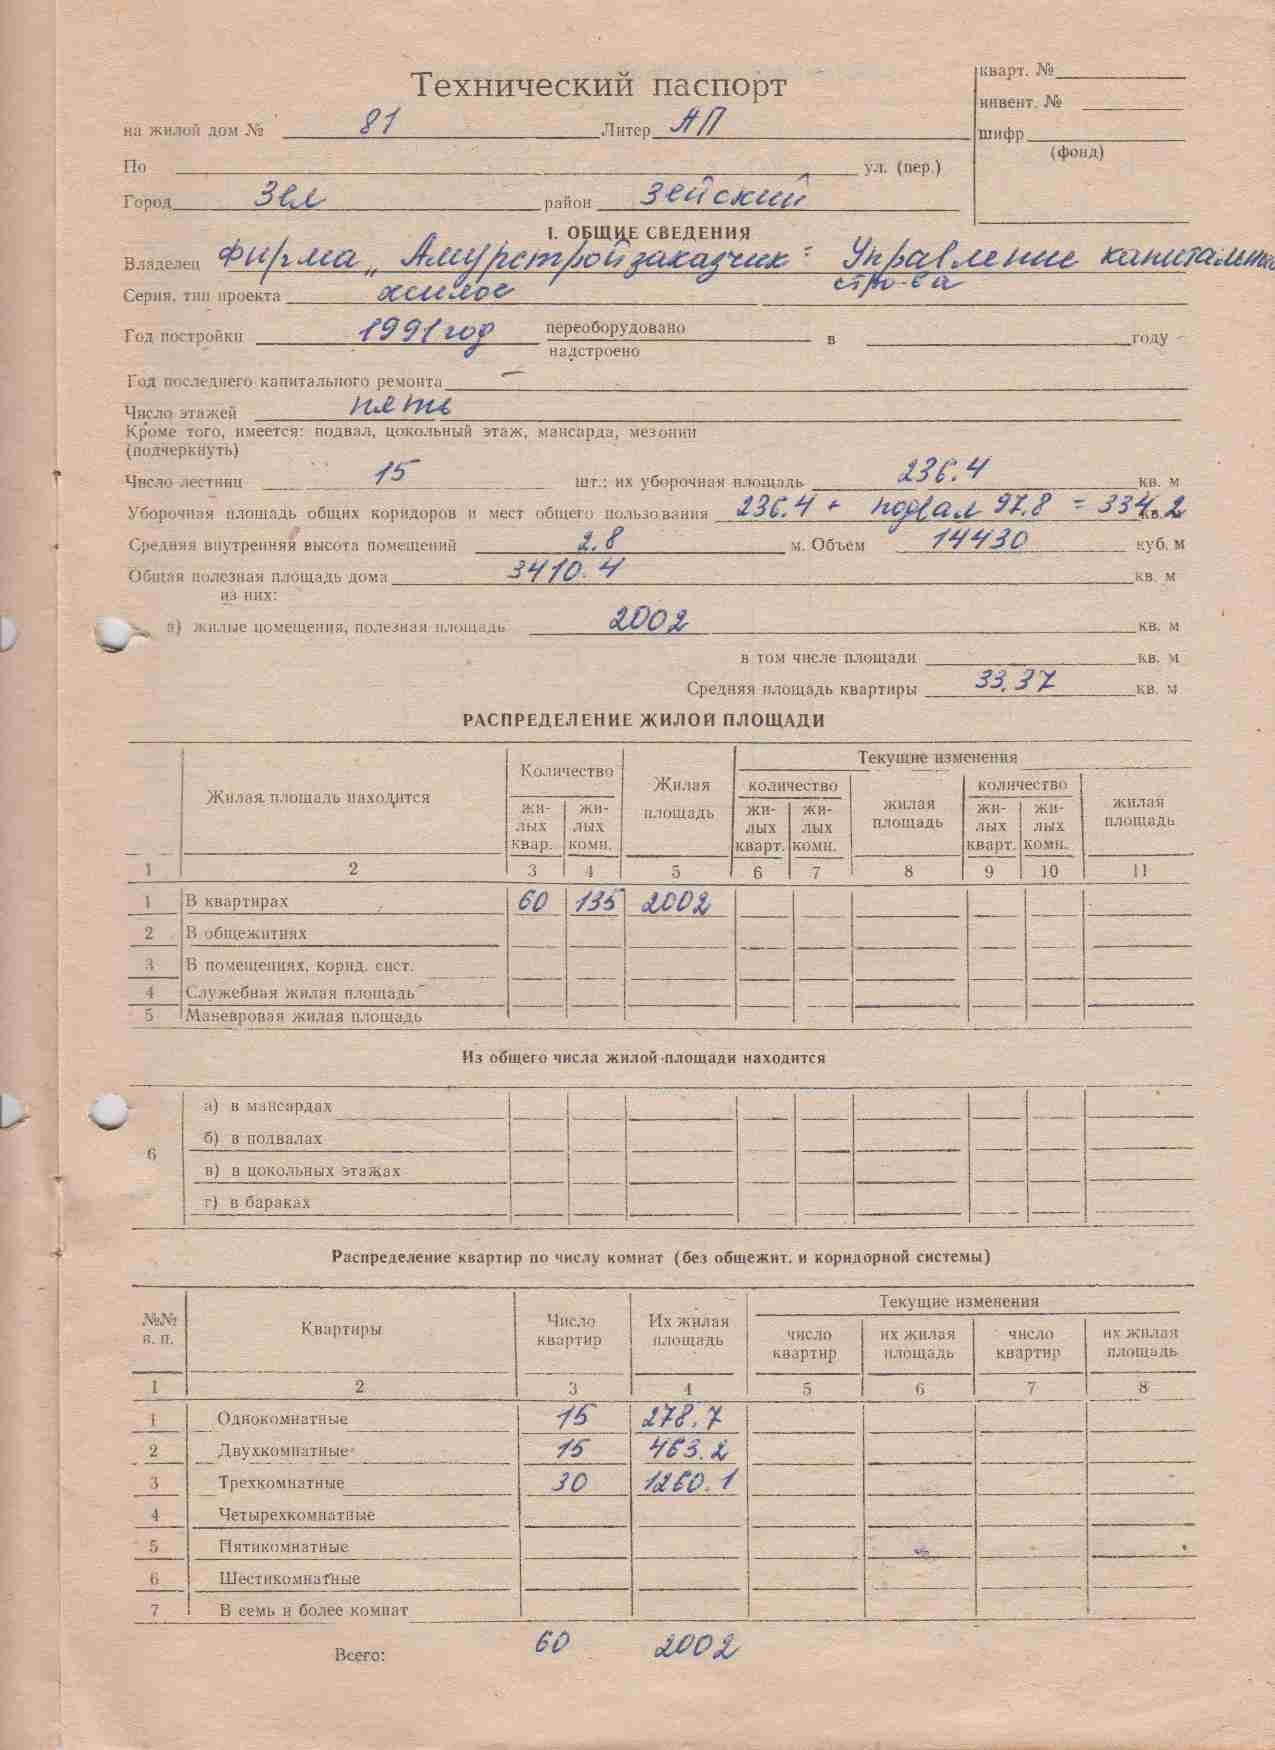 Технический паспорт
кварт. №
инвент. №
шифр
(фонд)
на жилой дом № 81 Литер АП
По ул. (пер.)
Город Зея район Зейский
I. ОБЩИЕ СВЕДЕНИЯ
Владелец Фирма „Амурстройзаказчик" Управление капитальн
стр-ва
Серия, тип проекта жилое
Год постройки 1991 год переоборудовано в году
надстроено
Год последнего капитального ремонта –
Число этажей пять
Кроме того, имеется: подвал, цокольный этаж, мансарда, мезонин
(подчеркнуть)
Число лестниц 15 шт.; их уборочная площадь 236.4 кв. м
Уборочная площадь общих коридоров и мест общего пользования 236.4 + подвал 97.8 = 334.2 кв. м
Средняя внутренняя высота помещений 2.8 м. Объем 14430 куб. м
Общая полезная площадь дома 3410.4 кв. м
из них:
а) жилые помещения, полезная площадь 2002 кв. м
в том числе площади кв. м
Средняя площадь квартиры 33.37 кв. м
РАСПРЕДЕЛЕНИЕ ЖИЛОЙ ПЛОЩАДИ
Жилая площадь находится
Количество
жи-
лых
квар.
жи-
лых
комн.
Жилая
площадь
Текущие изменения
количество
жи-
лых
кварт.
жи-
лых
комн.
жилая
площадь
количество
жи-
лых
кварт.
жи-
лых
комн.
жилая
площадь
1 2 3 4 5 6 7 8 9 10 11
1 В квартирах 60 135 2002
2 В общежитиях
3 В помещениях, корид. сист.
4 Служебная жилая площадь
5 Маневровая жилая площадь
Из общего числа жилой площади находится
6
а) в мансардах
б) в подвалах
в) в цокольных этажах
г) в бараках
Распределение квартир по числу комнат (без общежит. и коридорной системы)
№№
п. п.
Квартиры
Число
квартир
Их жилая
площадь
Текущие изменения
число
квартир
их жилая
площадь
число
квартир
их жилая
площадь
1 2 3 4 5 6 7 8
1 Однокомнатные 15 278.7
2 Двухкомнатные 15 463.2
3 Трехкомнатные 30 1260.1
4 Четырехкомнатные
5 Пятикомнатные
6 Шестикомнатные
7 В семь и более комнат
Всего: 60 2002